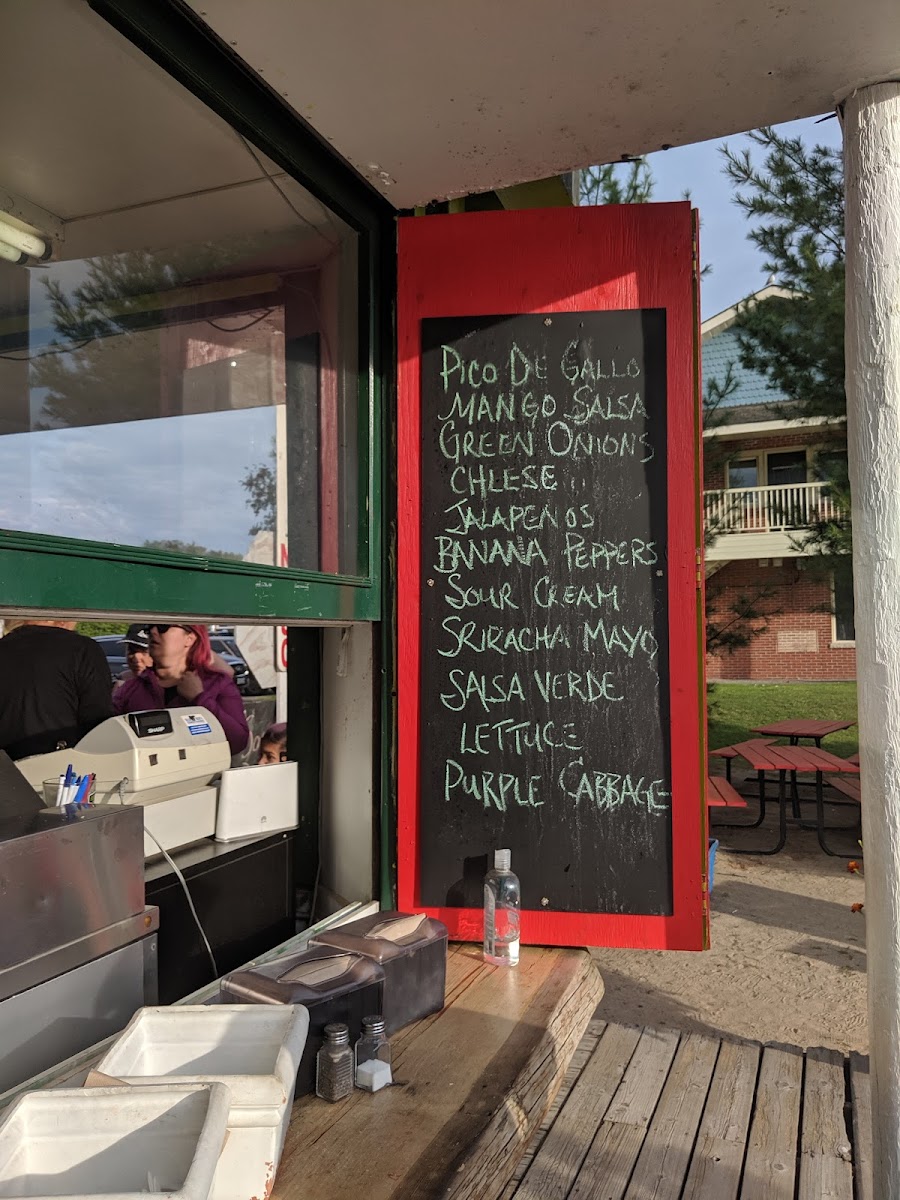 PICO DE GALLO
MANGO SALSA
GREEN ONIONS
CHEESE
JALAPENOS
BANANA PEPPERS
SOUR CREAM
SRIRACHA MAYO
SALSA VERDE
LETTUCE
PURPLE CABBAGE
SHARP